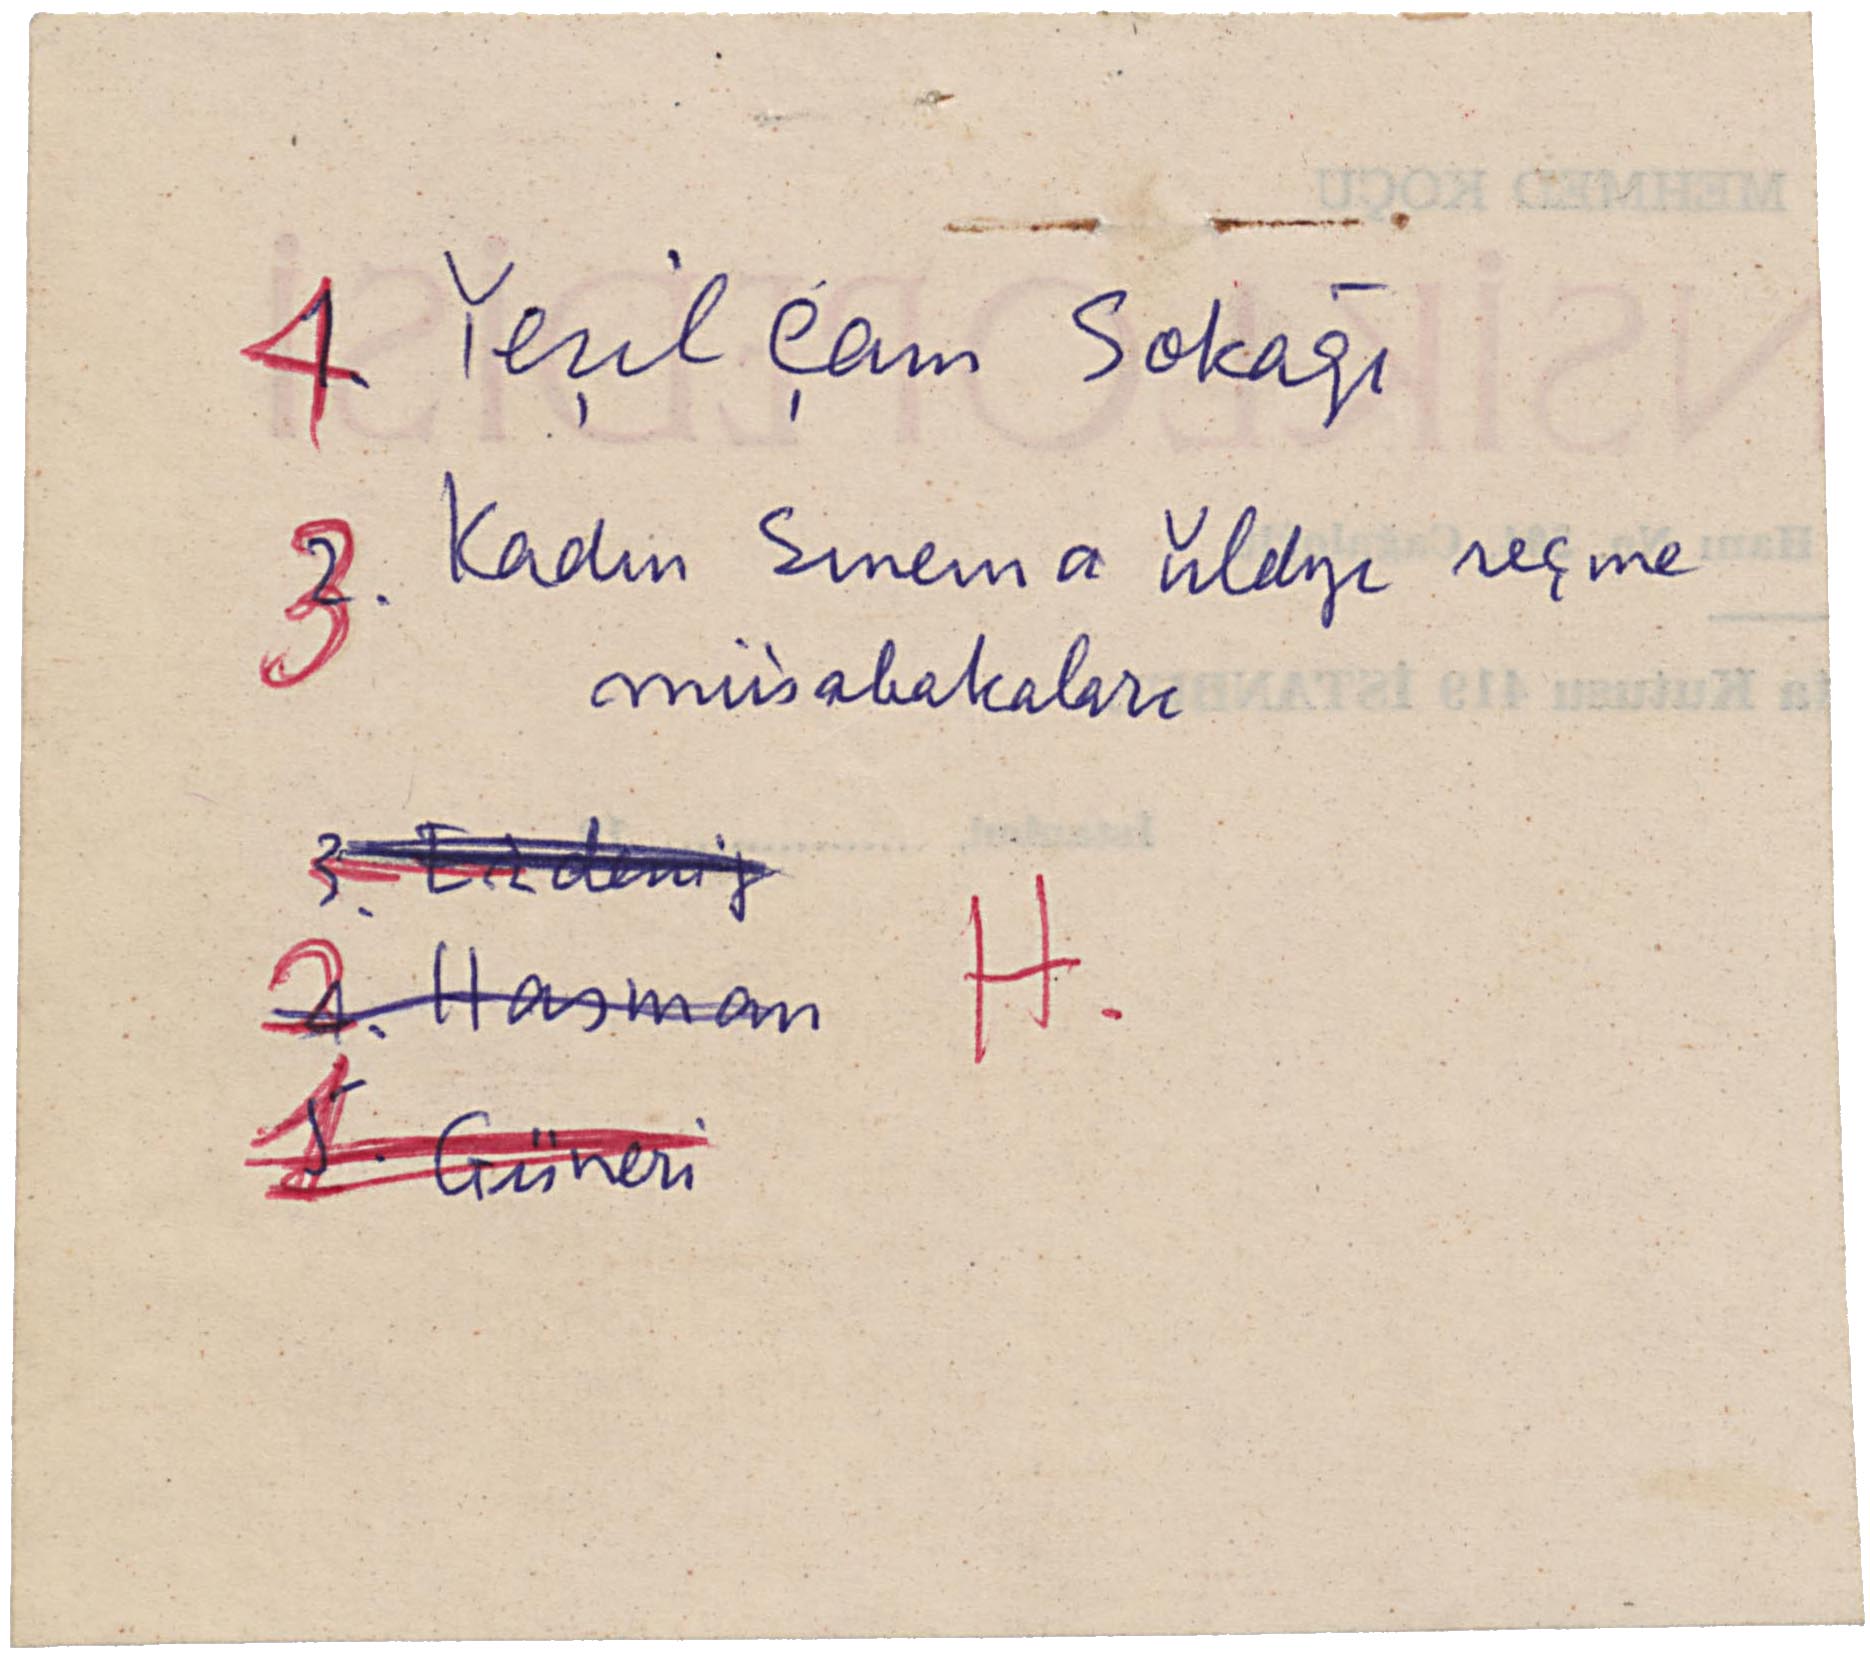 4. Yeşil Çam Sokağı
3 2. Kadın Sinema Yıldızı seçme
müsabakaları
3. Erdeniz
2 4. Hasman H.
1 5. Güneri
MEHMED KOÇU
NSİKLOPEDİSİ
Kutusu 419 İSTANBU